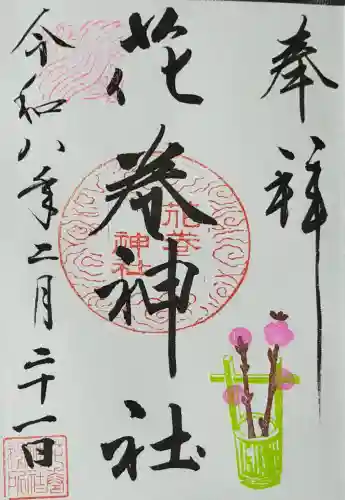 奉拝
花巻神社
令和八年二月二十一日
花巻
神社